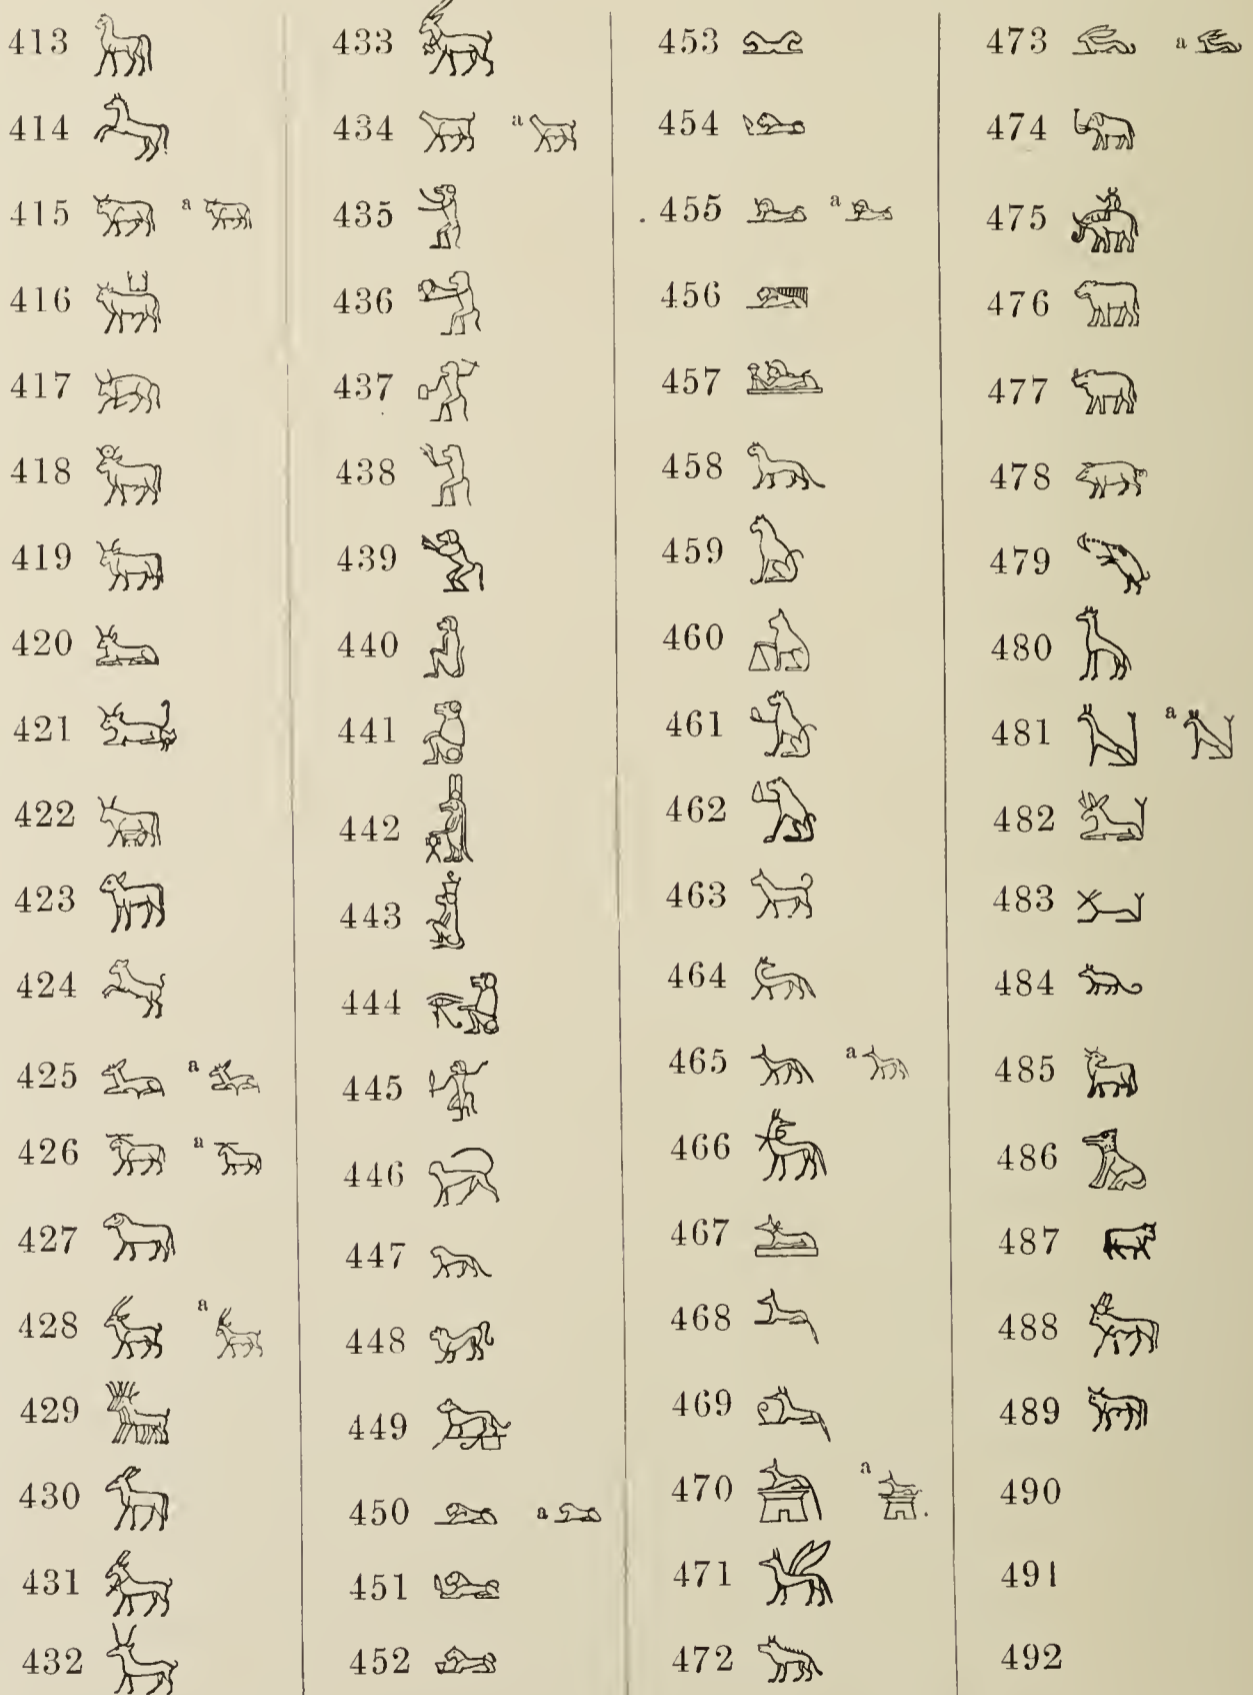 413
414
415 a
416
417
418
419
420
421
422
423
424
425 a
426 a
427
428 a
429
430
431
432
433
434 a
435
436
437
438
439
440
441
442
443
444
445
446
447
448
449
450 a
451
452
453
454
455 a
456
457
458
459
460
461
462
463
464
465 a
466
467
468
469
470 a
471
472
473 a
474
475
476
477
478
479
480
481 a
482
483
484
485
486
487
488
489
490
491
492